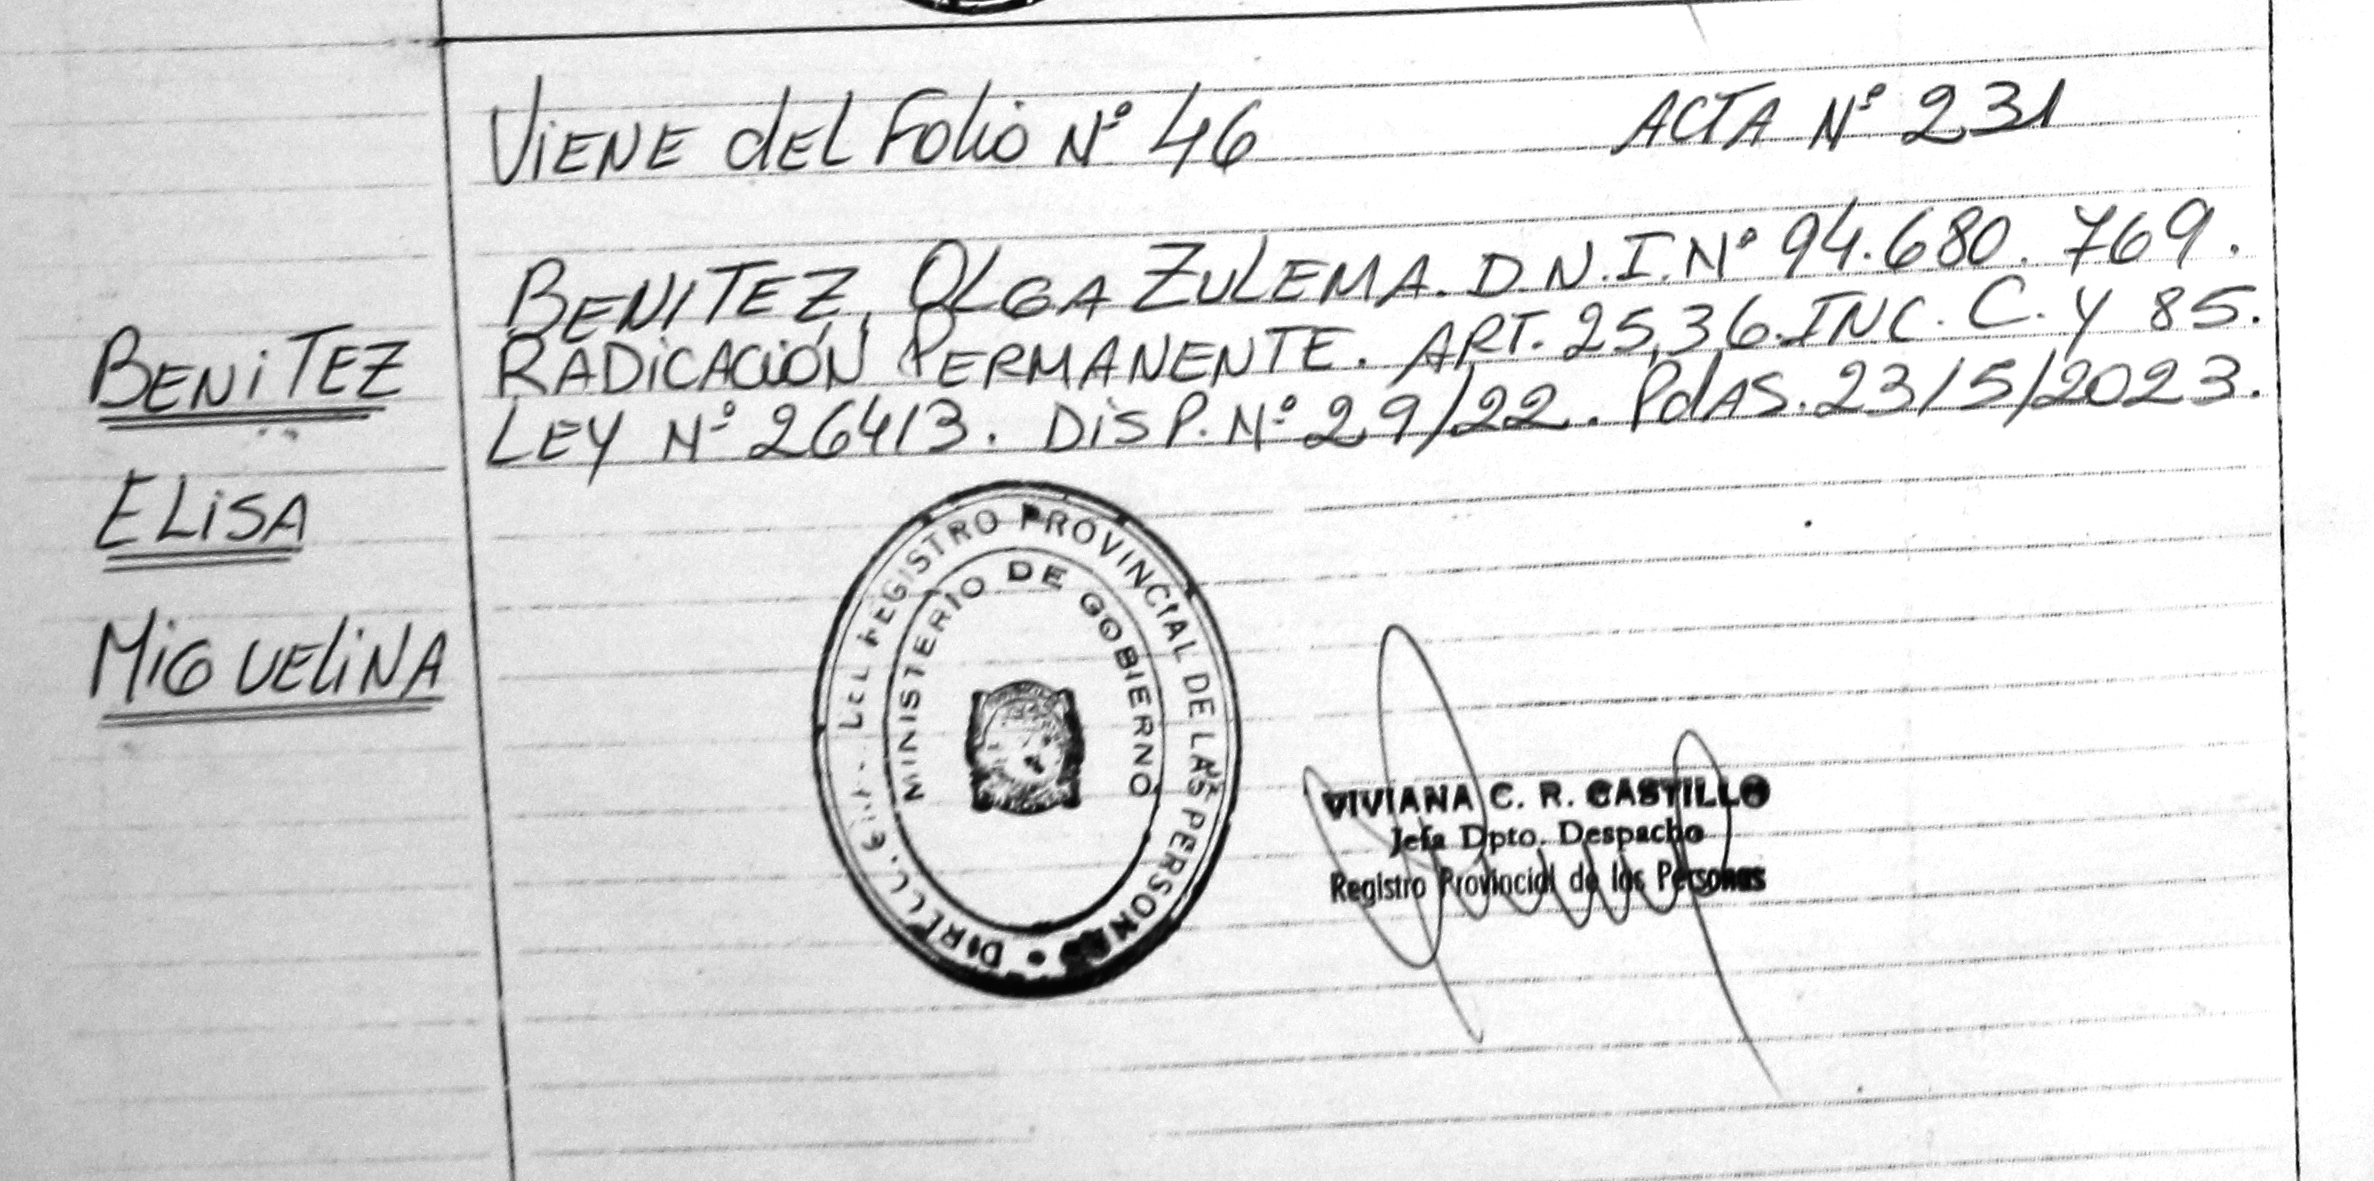 VIENE DEL FOLIO Nº 46
ACTA Nº 231
BENITEZ, OLGA ZULEMA. D.N.I. Nº 94.680.769.
RADICACIÓN PERMANENTE. ART. 25,36. INC. C. Y 85.
LEY Nº 26413. DISP. Nº 29/22. PdAS. 23/5/2023.
BENITEZ
ELISA
MIGUELINA
REGISTRO PROVINCIAL DE LAS PERSONAS
MINISTERIO DE GOBIERNO
VIVIANA C. R. CASTILLO
Jefa Dpto. Despacho
Registro Provincial de las Personas